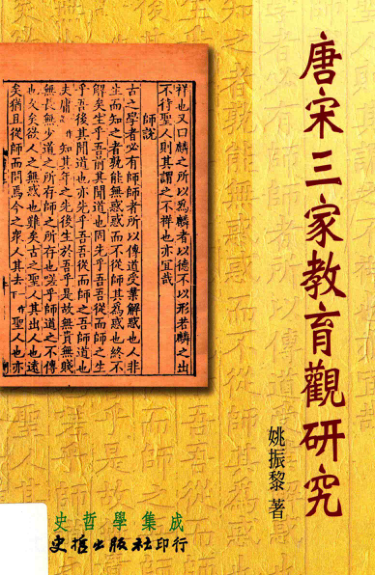 唐宋三家教育觀研究
姚振黎 著
祥也又曰麟之所以為麟者以德不以形若麟之出
不待聖人則其謂之不祥也亦宜哉
師說
古之學者必有師師者所以傳道受業解惑也人非
生而知之者孰能無惑惑而不從師其為惑也終不
解矣生乎吾前其聞道也固先乎吾吾從而師之生
乎吾後其聞道也亦先乎吾吾從而師之吾師道也
夫庸知其年之先後生於吾乎是故無貴無賤
無長無少道之所存師之所存也嗟乎師道之不傳
也久矣欲人之無惑也難矣古之聖人其出人也遠
矣猶且從師而問焉今之衆人其去聖人也亦
史哲學集成
史哲出版社印行